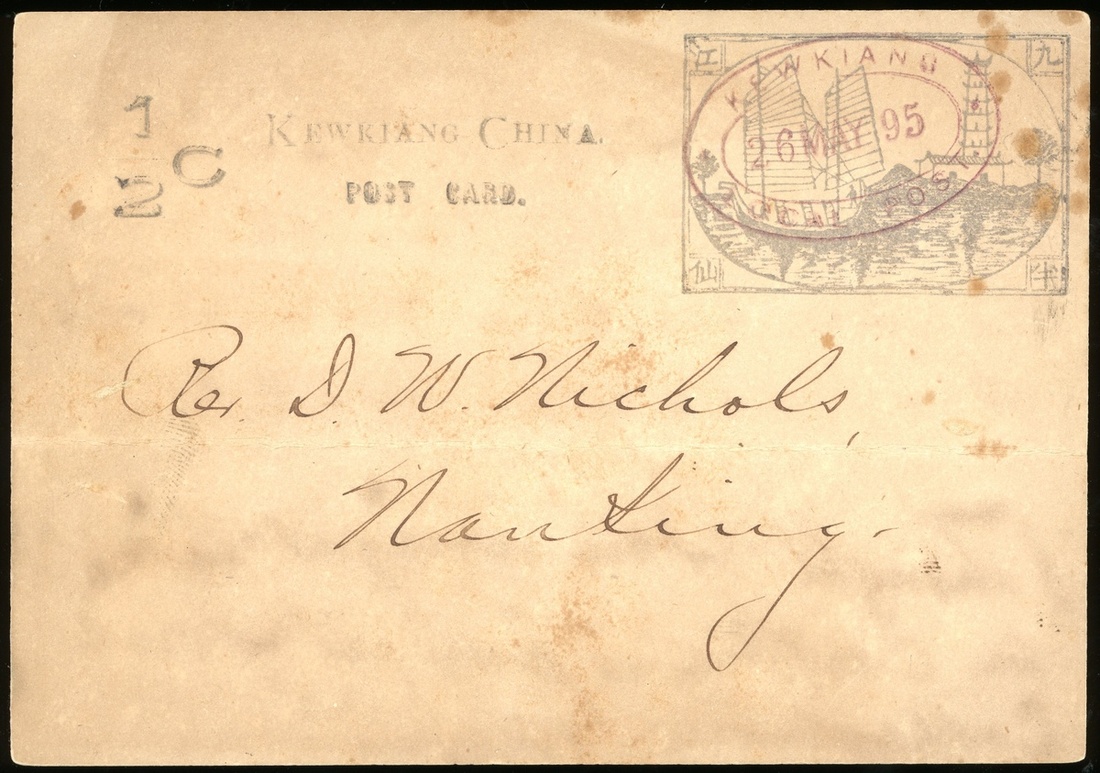 1/2 C
KEWKIANG CHINA.
POST CARD.
九江
半仙
KEWKIANG
26 MAY 95
LOCAL POST
Rev D. W. Nichols,
Nanking.